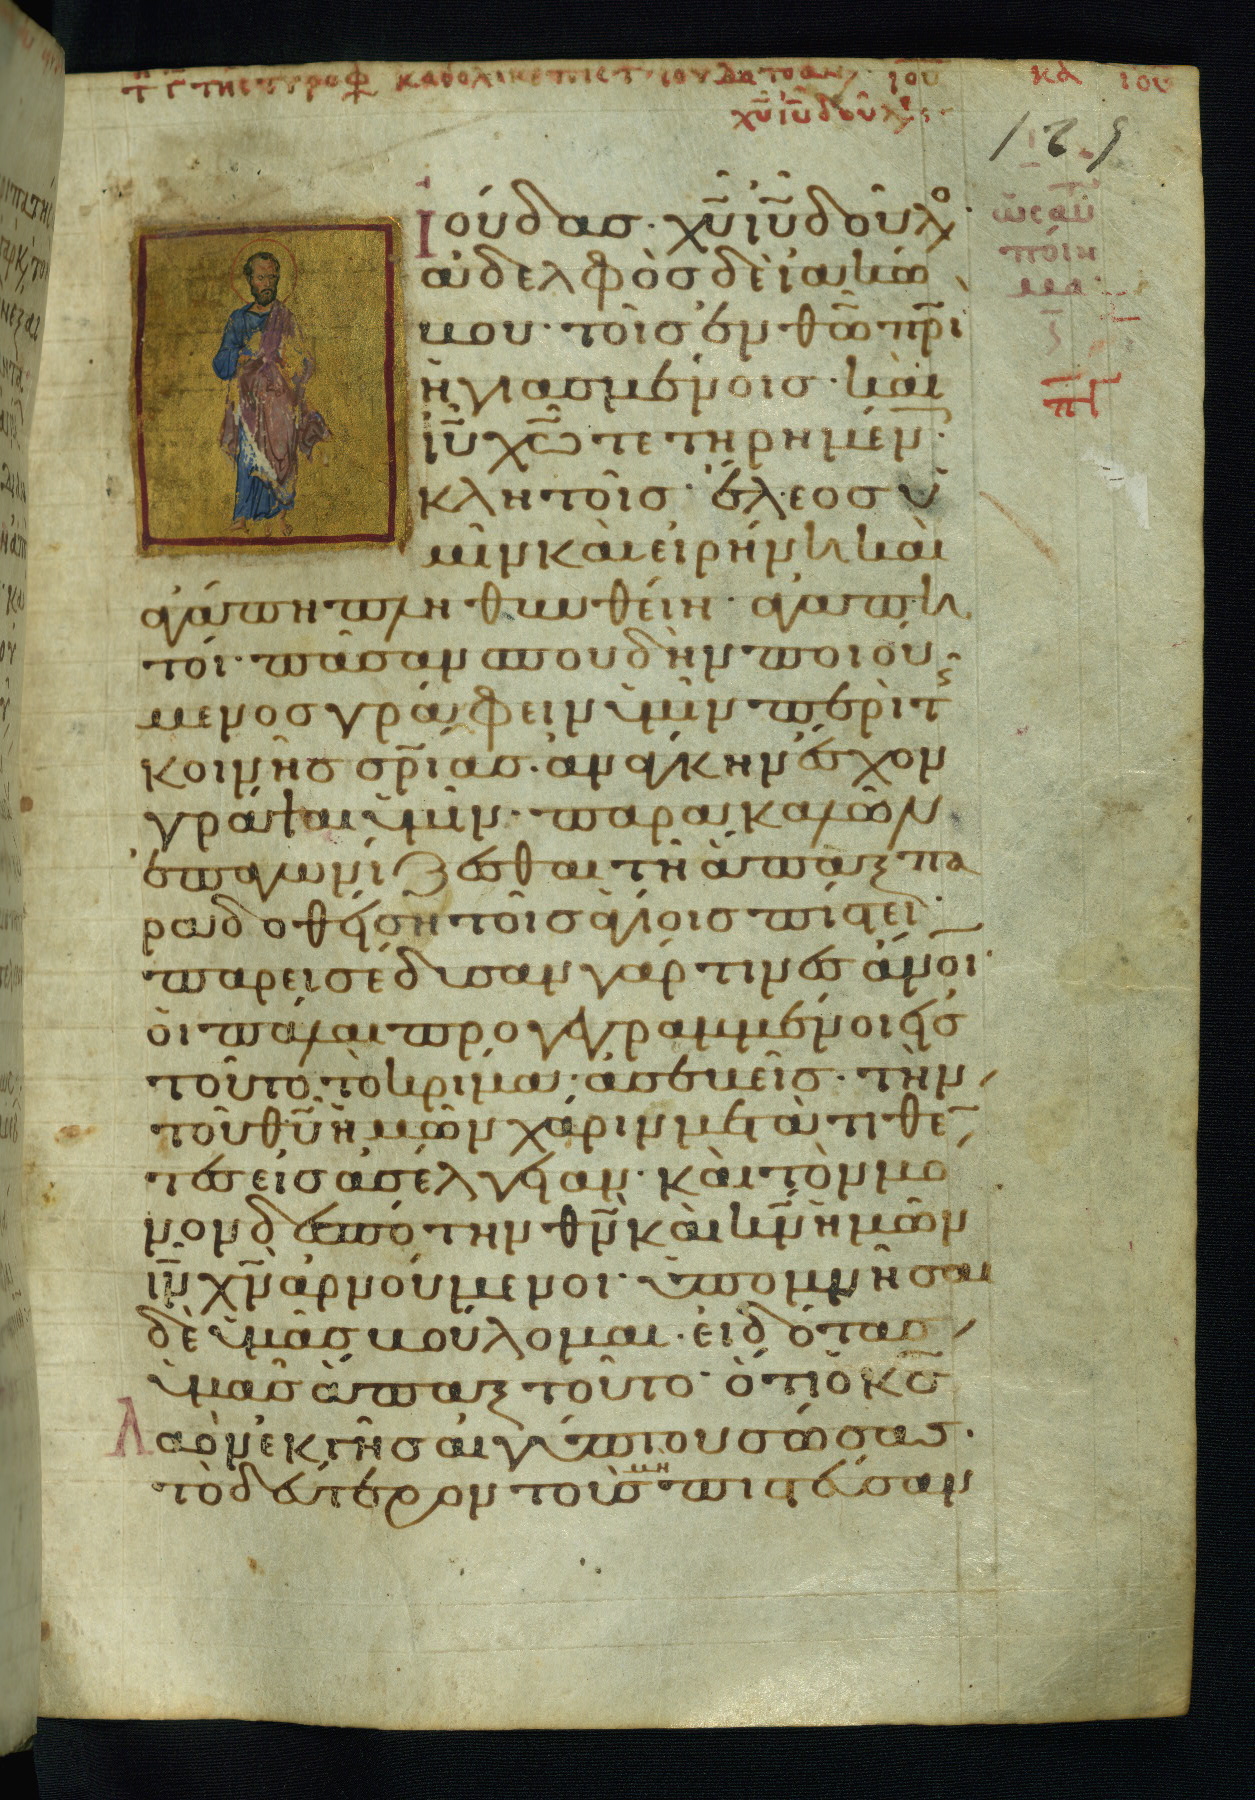 Ἰούδασ· χυ ιυ δοῦλο
ἀδελφὸσ δὲ ἰακώ
βου· τοῖσ ἐν θω πρι
ἡγιασμένοισ· καὶ
ιυ χω τετηρημέν·
κλητοῖσ· ἔλεοσ ὑ
μῖν καὶ εἰρήνη καὶ
ἀγάπη πληθυνθείη· ἀγαπη
τοί· πᾶσαν σπουδὴν ποιού
μενοσ γράφειν ὑμῖν περὶ τ
κοινῆσ σριασ· ἀνάγκην ἔσχον
γράψαι ὑμῖν· παρακαλῶν
ἐπαγωνίζεσθαι τῆ ἅπαξ πα
ραδοθείση τοῖσ ἁγίοισ πίστει·
παρεισέδυσαν γάρ τινεσ ἄνοι·
οἱ πάλαι προγεγραμμένοι εἰσ
τοῦτο τὸ κρίμα· ἀσεβεῖσ· τὴν
τοῦ θυ ἡμῶν χάριν μετατιθέ
τεσ εἰσ ἀσέλγειαν· καὶ τὸν μό
νον δεσπότην θν καὶ κν ἡμῶν
ιν χν ἀρνούμενοι· ὑπομνῆσαι
δὲ ὑμᾶσ βούλομαι· εἰδότασ
ὑμᾶσ ἅπαξ τοῦτο· ὅτι ὁ κσ
λαὸν ἐκ γῆσ αἰγύπτου σώσασ·
τὸ δεύτερον τοὺσ μὴ πιστεύσαν
129